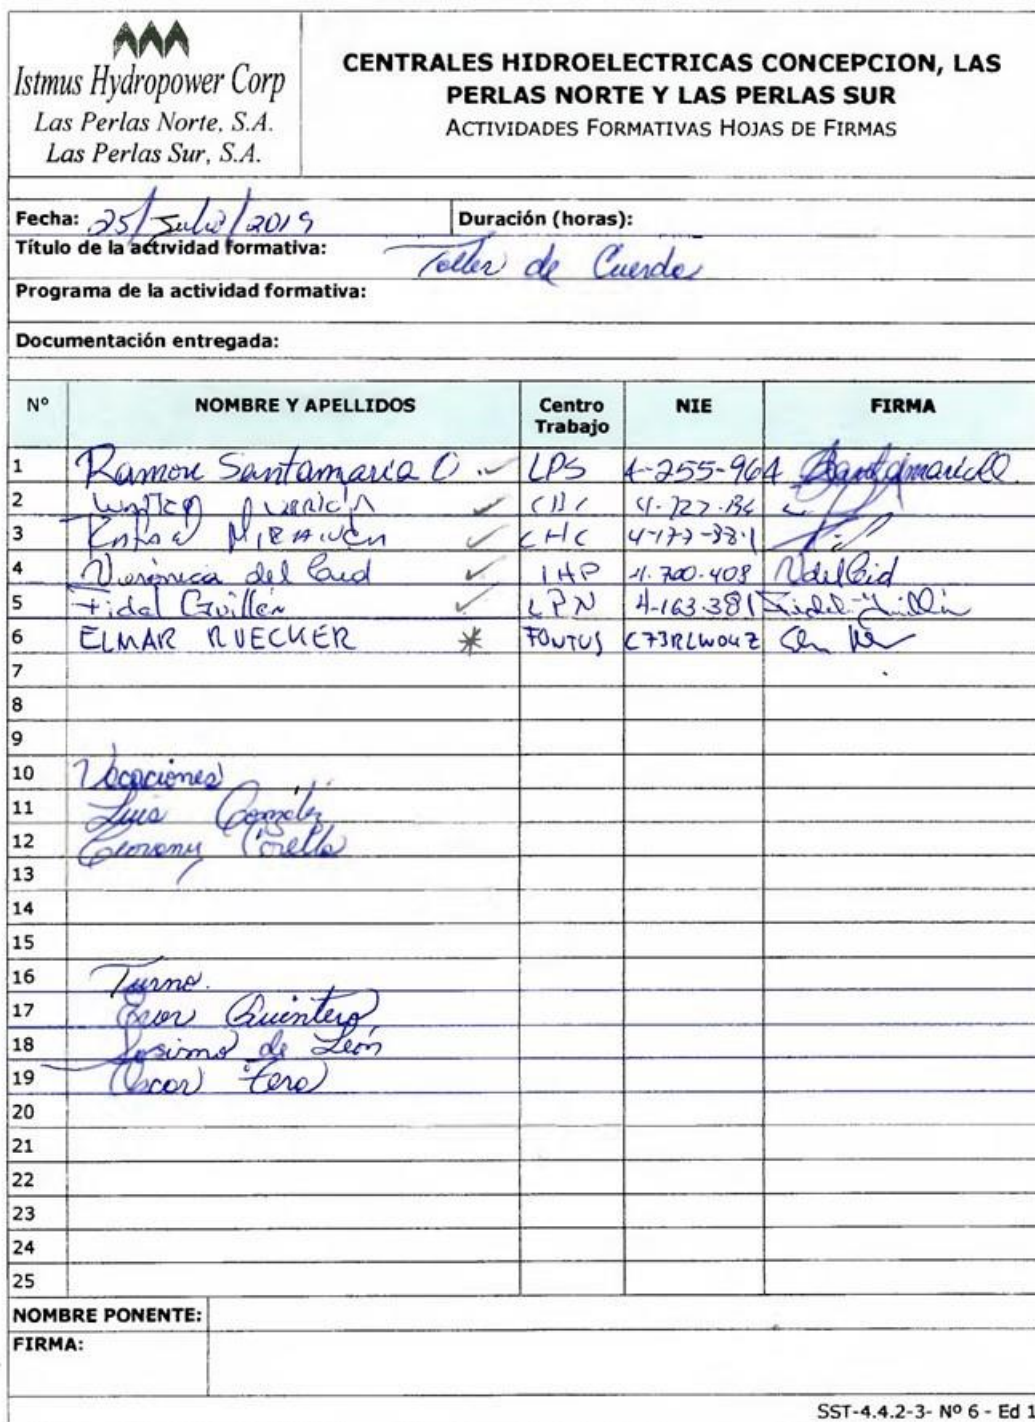 Istmus Hydropower Corp
Las Perlas Norte, S.A.
Las Perlas Sur, S.A.
CENTRALES HIDROELECTRICAS CONCEPCION, LAS
PERLAS NORTE Y LAS PERLAS SUR
ACTIVIDADES FORMATIVAS HOJAS DE FIRMAS
Fecha: 25/Julio/2019 Duración (horas):
Título de la actividad formativa: Taller de Cuerda
Programa de la actividad formativa:
Documentación entregada:
Nº NOMBRE Y APELLIDOS Centro Trabajo NIE FIRMA
1 Ramon Santamaria C LPS 4-255-964
2
3 CHC
4 Verónica del Cid IHP 4-700-408 VdelCid
5 Fidel Guillén LPN 4-163-381 Fidel Guillén
6 ELMAR RUECKER FONTUS
7
8
9
10 Vacaciones
11 Luis González
12
13
14
15
16 Turno.
17 Quintero
18 Sosimo de León
19 Oscar
20
21
22
23
24
25
NOMBRE PONENTE:
FIRMA:
SST-4.4.2-3- Nº 6 - Ed 1